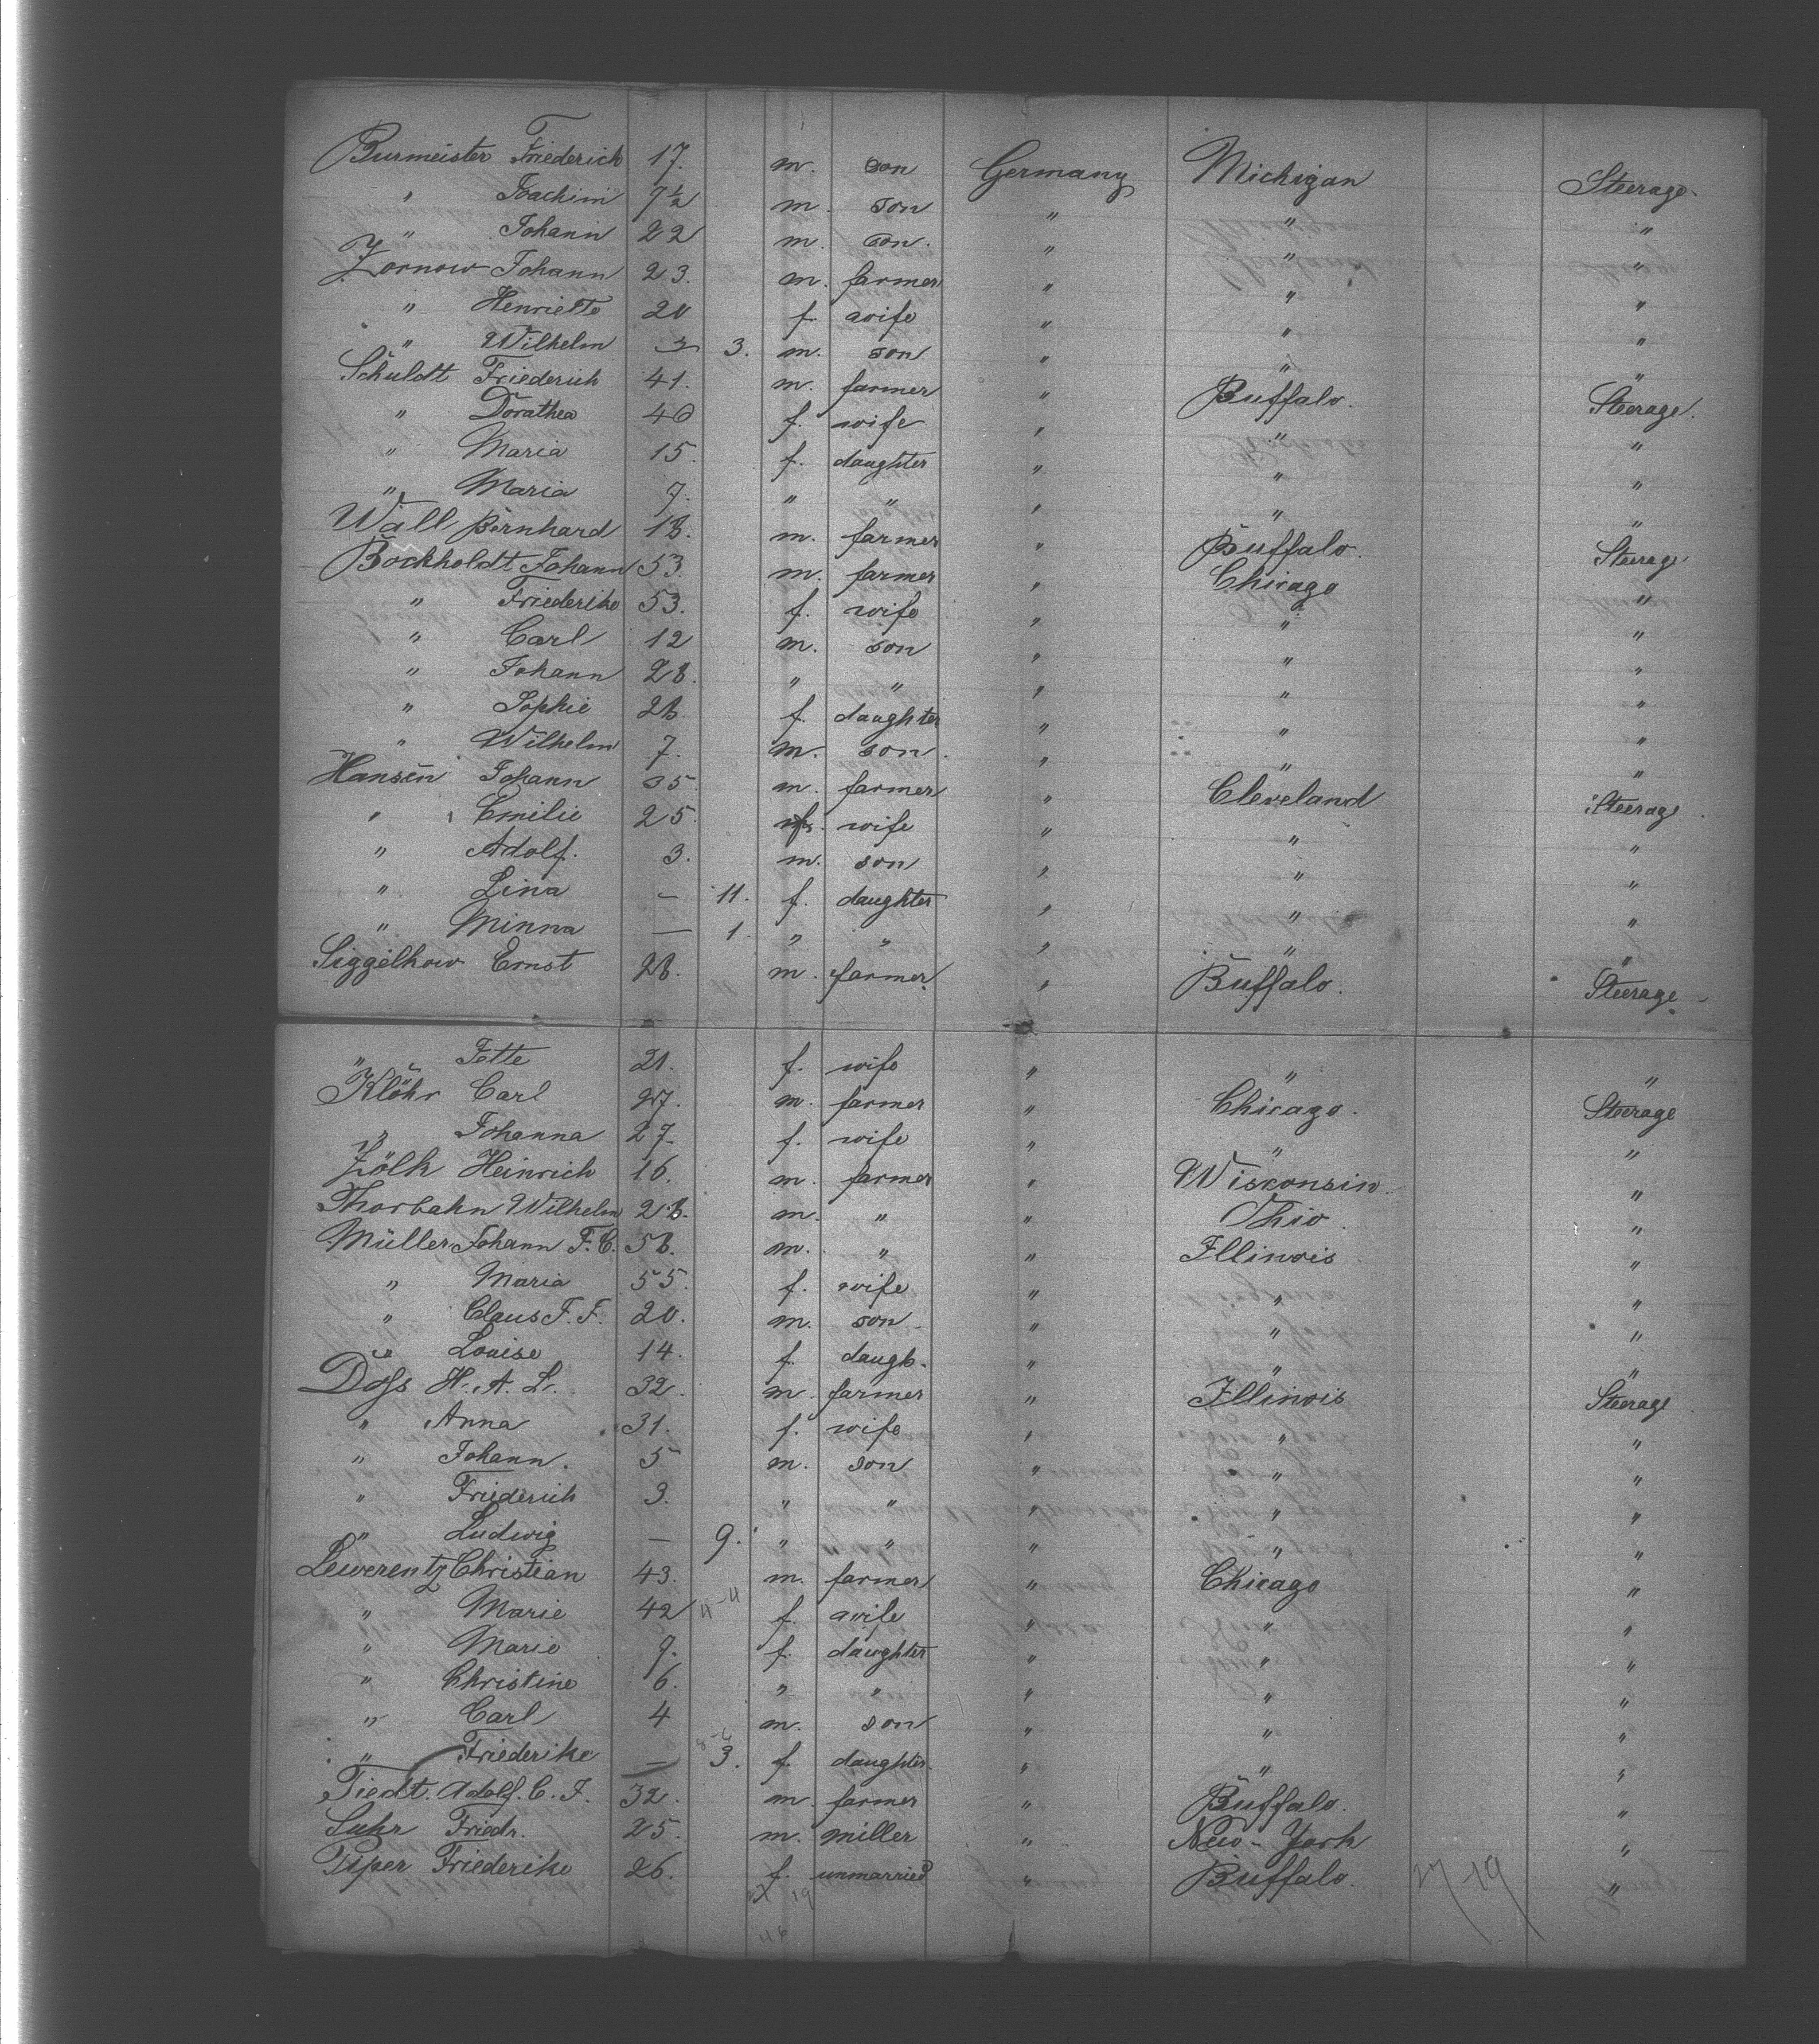 Burmeister Friederich 17. m. son Germany Michigan Steerage.
" Joachim 7½ m. son " " "
" Johann 22 m. son. " " "
Zornow Johann 23. m. farmer " " "
" Henriette 20 f. wife " " "
" Wilhelm 3. m. son " " "
Schuldt Friederich 41. m. farmer " Buffalo. Steerage.
" Dorathea 40 f. wife " " "
" Maria 15. f. daughter " " "
" Maria 7. " " " " "
Wall Bernhard 18. m. farmer " Buffalo. Steerage
Bockholdt Johann 53. m. farmer " Chicago "
" Friederike 53. f. wife " " "
" Carl 12 m. son " " "
" Johann 28. " " " " "
" Sophie 28. f. daughter " " "
" Wilhelm 7. m. son. " " "
Hansen Johann 35. m. farmer " Cleveland Steerage.
" Emilie 25. f. wife " " "
" Adolf. 3. m. son " " "
" Lina – 11. f. daughter " " "
" Minna — 1. " " " " "
Siggelkow Ernst 28. m. farmer. " Buffalo. Steerage
" Jette 21. f. wife " " "
Klöhr Carl 27. m. farmer " Chicago. Steerage
" Johanna 27. f. wife " " "
Zölk Heinrich 16. m. farmer " Wisconsin. "
Thorbahn Wilhelm 28. m. " " Ohio. "
Müller Johann F. C. 58. m. " " Illinois "
" Maria 55. f. wife " " "
" Claus F. F. 20. m. son " " "
" Louise 14. f. daugh. " " "
Doss H. A. L. 32. m. farmer " Illinois Steerage
" Anna 31. f. wife " " "
" Johann. 5 m. son " " "
" Friederich 3. " " " " "
" Ludwig — 9. " " " " "
Lewerentz Christian 43. m. farmer " Chicago "
" Marie 42 f. wife " " "
" Marie 9. f. daughter " " "
" Christine 6. " " " " "
" Carl 4 m. son " " "
" Friederike — 3. f. daughter. " " "
Tiedt. Adolf. C. J. 32. m. farmer " Buffalo. "
Suhr Friedr. 25. m. miller " New-York "
Piper Friederike 26. f. unmarried " Buffalo. "
27 19